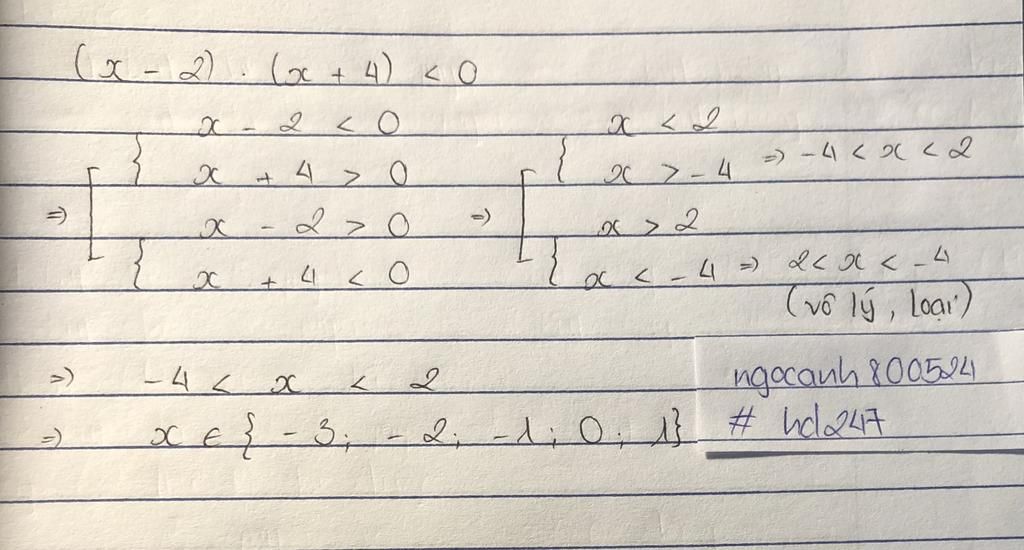 (x - 2) . (x + 4) < 0
=> [ { x - 2 < 0
x + 4 > 0
{ x - 2 > 0
x + 4 < 0
=> [ { x < 2
x > -4 => -4 < x < 2
{ x > 2
x < -4 => 2 < x < -4
(vô lý, loại)
=> -4 < x < 2
=> x ∈ { -3; -2; -1; 0; 1}
ngocanh800524
# hd247